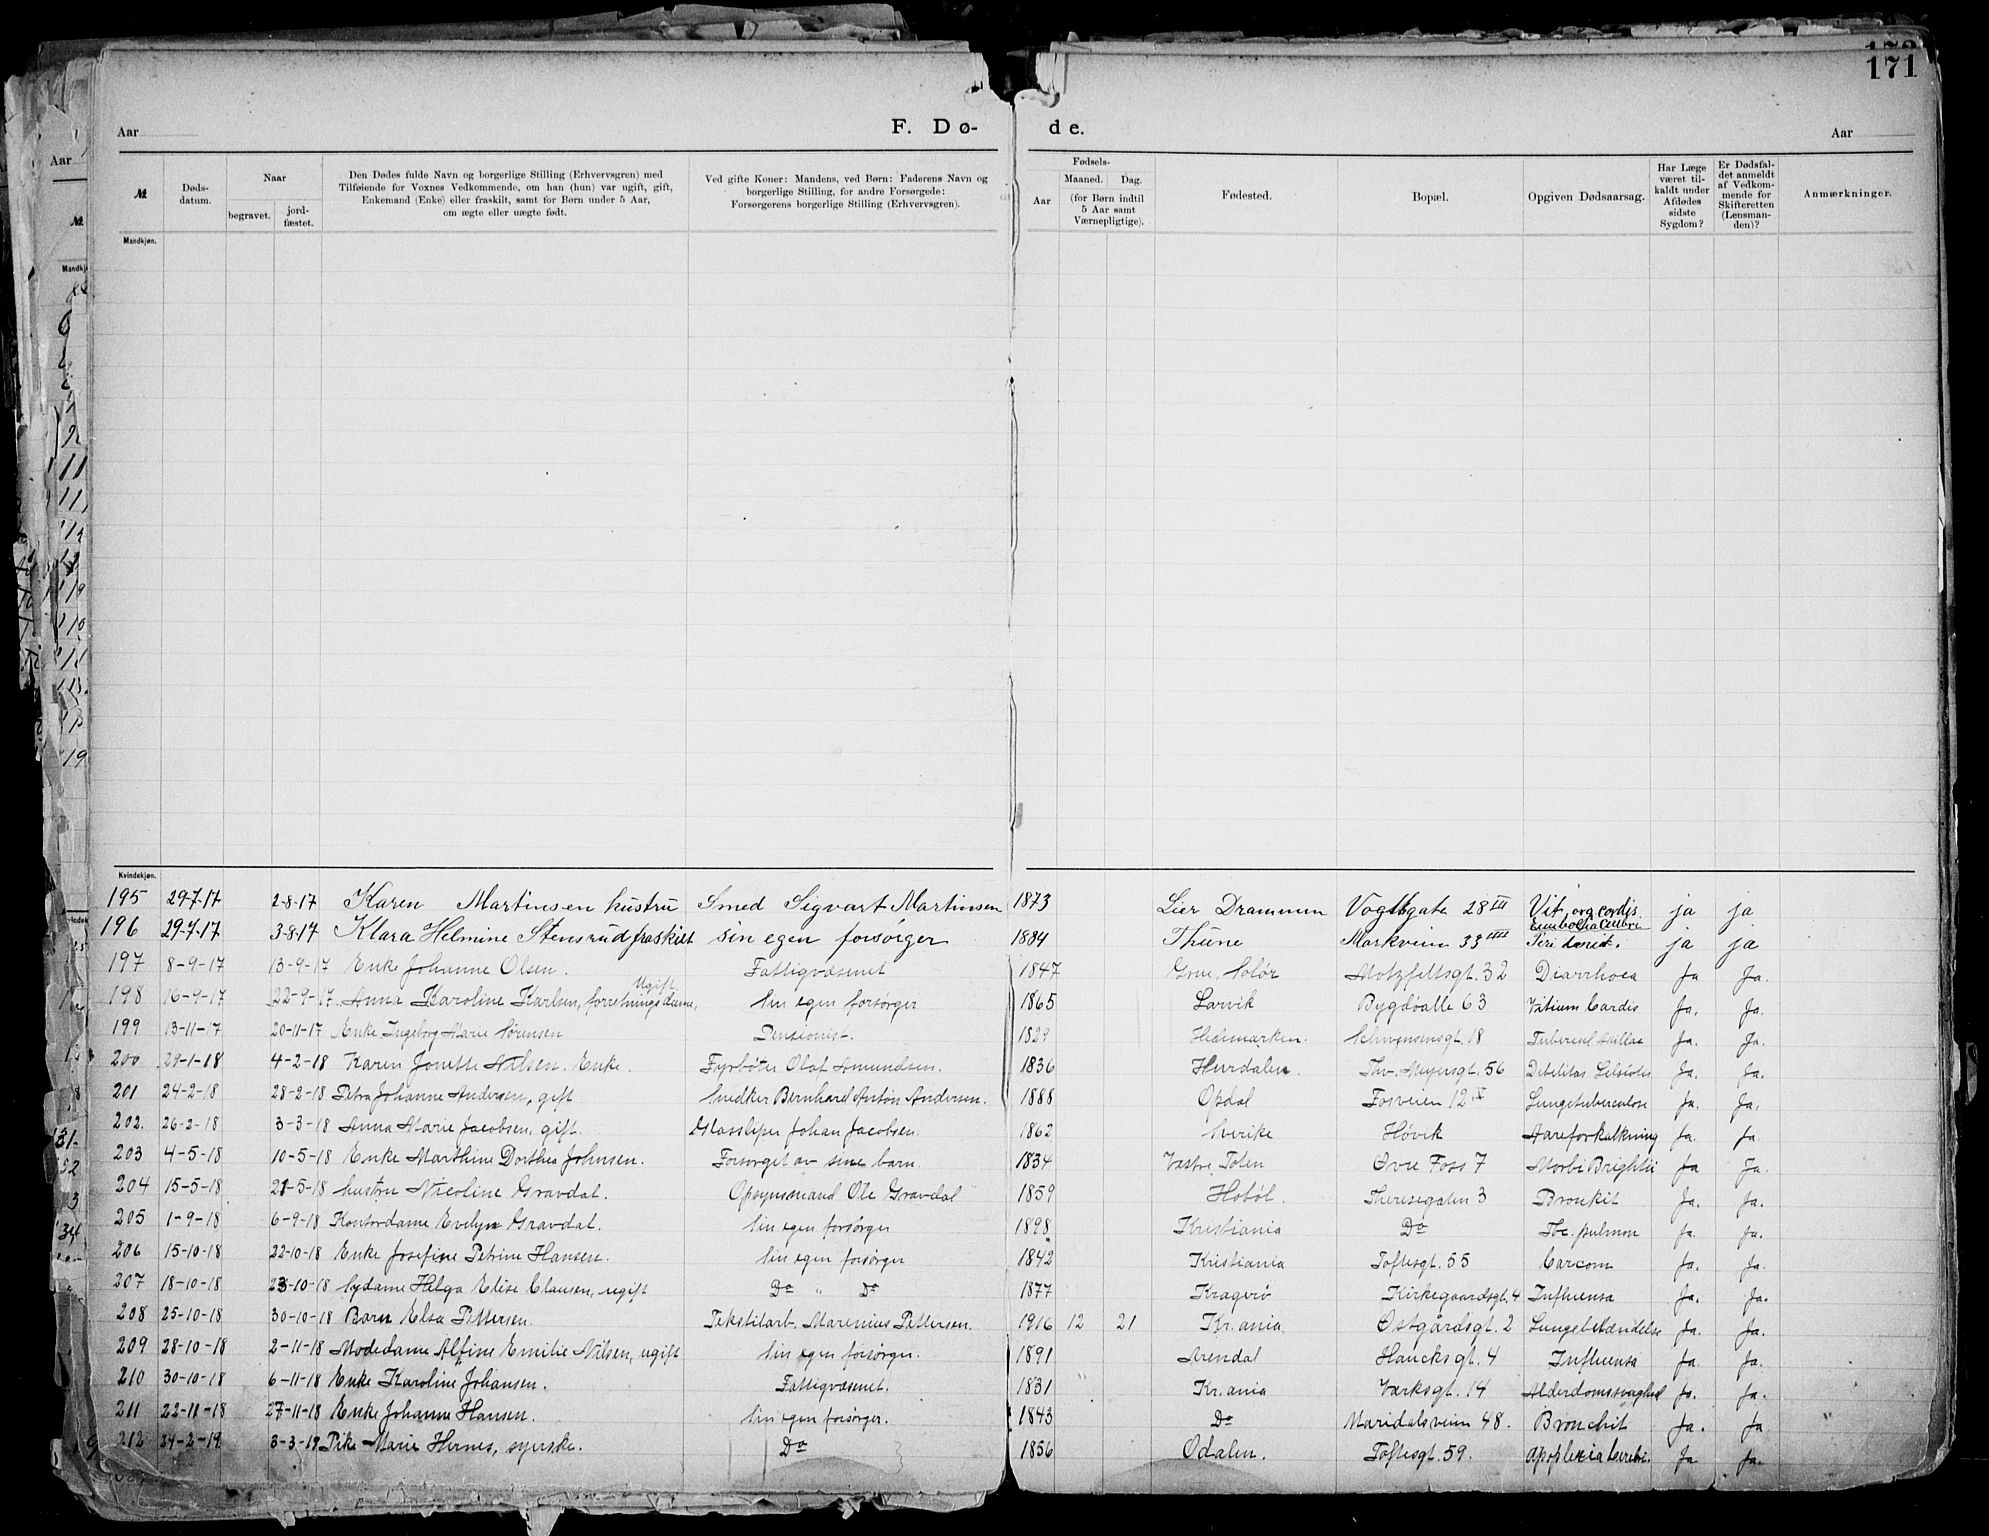 171
Aar
F. Dø-
de.
Aar
№
Døds-
datum.
Naar
begravet.
jord-
fæstet.
Den Dødes fulde Navn og borgerlige Stilling (Erhvervsgren) med
Tilføiende for Voxnes Vedkommende, om han (hun) var ugift, gift,
Enkemand (Enke) eller fraskilt, samt for Børn under 5 Aar,
om ægte eller uægte født.
Ved gifte Koner: Mandens, ved Børn: Faderens Navn og
borgerlige Stilling, for andre Forsørgede:
Forsørgerens borgerlige Stilling (Erhvervsgren).
Fødsels-
Aar
Maaned.
Dag.
(for Børn indtil
5 Aar samt
Værnepligtige).
Fødested.
Bopæl.
Opgiven Dødsaarsag.
Har Læge
været til-
kaldt under
Afdødes
sidste
Sygdom?
Er Dødsfal-
det anmeldt
af Vedkom-
mende for
Skifteretten
(Lensman-
den)?
Anmærkninger.
Mandkjøn.
Kvindekjøn.
195 29-7-17 2-8-17 Karen Martinsen hustru Smed Sigvart Martinsen 1873 Lier Drammen Vogtsgate 28 III Vit. org cordis. ja ja
Embolia cerebri
196 29-7-17 3-8-17 Klara Helmine Stensrud fraskilt sin egen forsørger 1884 Thune Markveien 33 IIII ja ja
197 8-9-17 13-9-17 Enke Johanne Olsen. Fattigvæsenet 1847 Grue, Solør Motzfeltsgt. 32 Diarrhoea Ja Ja.
Ugift
198 16-9-17 22-9-17 Anna Karoline Karlsen, forretningsdame, Sin egen forsørger 1865 Larvik Bygdøalle 63 Vitium Cordis Ja. Ja.
199 13-11-17 20-11-17 Enke Ingeborg Marie Sørensen Pensionist. 1829 Hedemarken. Schwensensgt. 18 Ja. Ja.
200 29-1-18 4-2-18 Karen Jonette Nilsen. Enke. Fyrbøter Olaf Amundsen. 1836 Hurdalen. Thv. Meyersgt. 56 Ja. Ja.
201 24-2-18 28-2-18 Petra Johanne Andersen, gift Snedker Bernhard Anton Andersen. 1888 Opdal Fosveien 12 V Lungetuberculose Ja. Ja.
202. 26-2-18 3-3-18 Anna Marie Jacobsen, gift. Glassliper Johan Jacobsen. 1862 Sverike Høvik Aareforkalkning Ja. Ja
203 4-5-18 10-5-18 Enke Marthine Dorthea Johnsen. Forsørget av sine barn 1834 Vestre Toten Øvre Foss 7 Morbi Brightii Ja Ja.
204 15-5-18 21-5-18 hustru Nicoline Gravdal. Opsynsmand Ole Gravdal 1859 Hobøl. Theresegaten 3 Bronkit Ja. Ja.
205 1-9-18 6-9-18 Kontordame Evelyn Gravdal. Sin egen forsørger 1898 Kristiania Do Tbc. pulmon Ja. Ja.
206 15-10-18 22-10-18 Enke Josefine Petrine Hansen. Sin egen forsørger 1842 Kristiania Toftesgt. 55 Carcom Ja. Ja.
207 18-10-18 23-10-18 Sydame Helga Elise Clausen, ugift Do " Do 1877 Kragerø Kirkegaardsgt. 4 Influensa Ja. Ja.
208 25-10-18 30-10-18 Barn Elsa Pettersen. Tekstilarb. Marenius Pettersen. 1916 12 21 Kr.ania Østgårdsgt. 2 Lungebetændelse Ja. Ja.
209 28-10-18 2-11-18 Modedame Alfine Emilie Nilsen, ugift Sin egen forsørger. 1891 Arendal Haucksgt. 4 Influensa Ja. Ja.
210 30-10-18 6-11-18 Enke Karoline Johansen. Fattigvæsenet. 1831 Kr.ania Verksgt. 14 Alderdomssvaghed Ja. Ja.
211 22-11-18 27-11-18 Enke Johanne Hansen. Sin egen forsørger. 1843 Do Maridalsveien 48. Bronchit Ja. Ja.
212 24-2-19. 3-3-19 Pike Marie Hernes, syerske. Do 1856 Odalen. Toftesgt. 59. Apoplexia cerebri. Ja Ja.